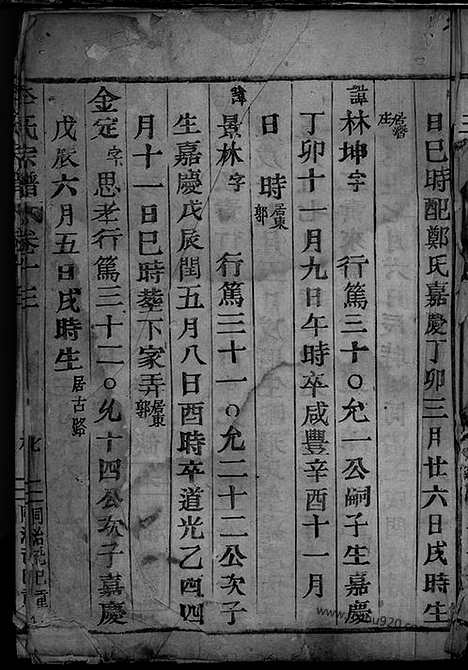 日巳時配鄭氏嘉慶丁卯三月廿六日戌時生
居潛庄
諱林坤字 行篤三十〇允一公嗣子生嘉慶
丁卯十一月九日午時卒咸豐辛酉十一月
日 時居東郭
諱景林字 行篤三十一〇允二十二公次子
生嘉慶戊辰閏五月八日酉時卒道光乙酉四
月十一日巳時葬下家弄居東郭
金定字思孝行篤三十二〇允十四公次子嘉慶
戊辰六月五日戌時生居古路
氏宗譜 卷十三